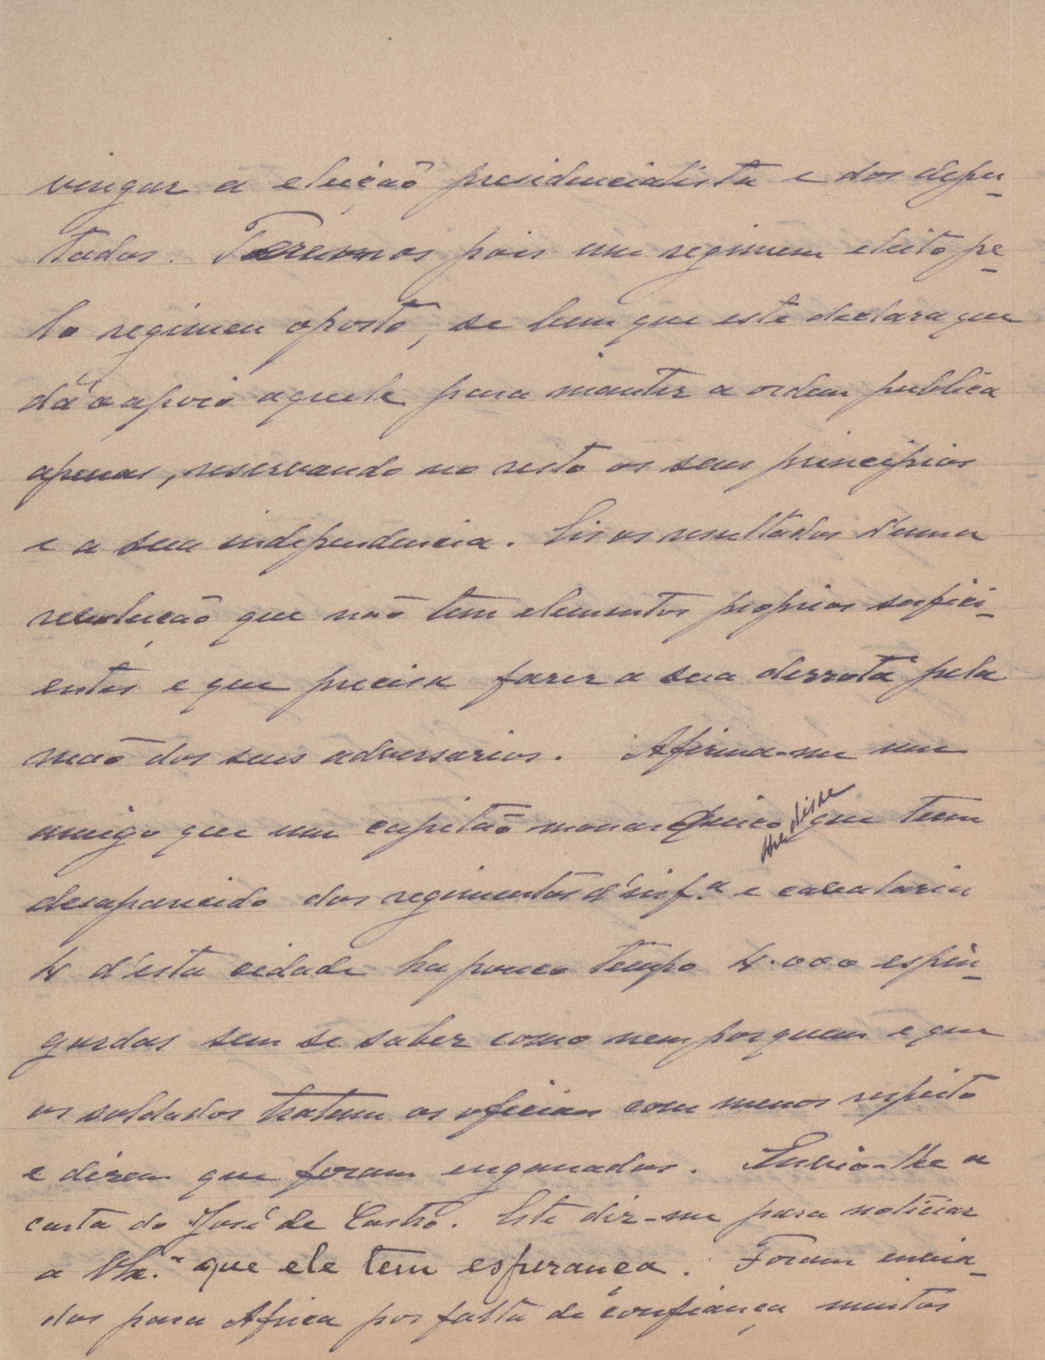 vingar a eleição presidencialista e dos depu-
tados. Teremos pois um regimem eleito pe-
lo regimen oposto, se bem que este declara que
dá o apoio aquele para manter a ordem publica
apenas, reservando no resto os seus principios
e a sua independencia. Eis os resultados d'uma
revolução que não tem elementos proprios sufici-
entes e que precisa fazer a sua derrota pela
mão dos seus adversarios. Afirma-me um
amigo que um capitão monarquico lhe disse que tem
desaparecido dos regimentos d'inf.ª e cavalaria
4 d'esta cidade ha pouco tempo 4.000 espin-
gardas sem se saber como nem por quem e que
os soldados tratam os oficiais com menos respeito
e dizem que foram enganados. Envio-lhe a
carta do José de Castro. Este diz-me para noticiar
a V. Ex.ª que ele tem esperança. Foram envia-
dos para Africa por falta de confiança muitos